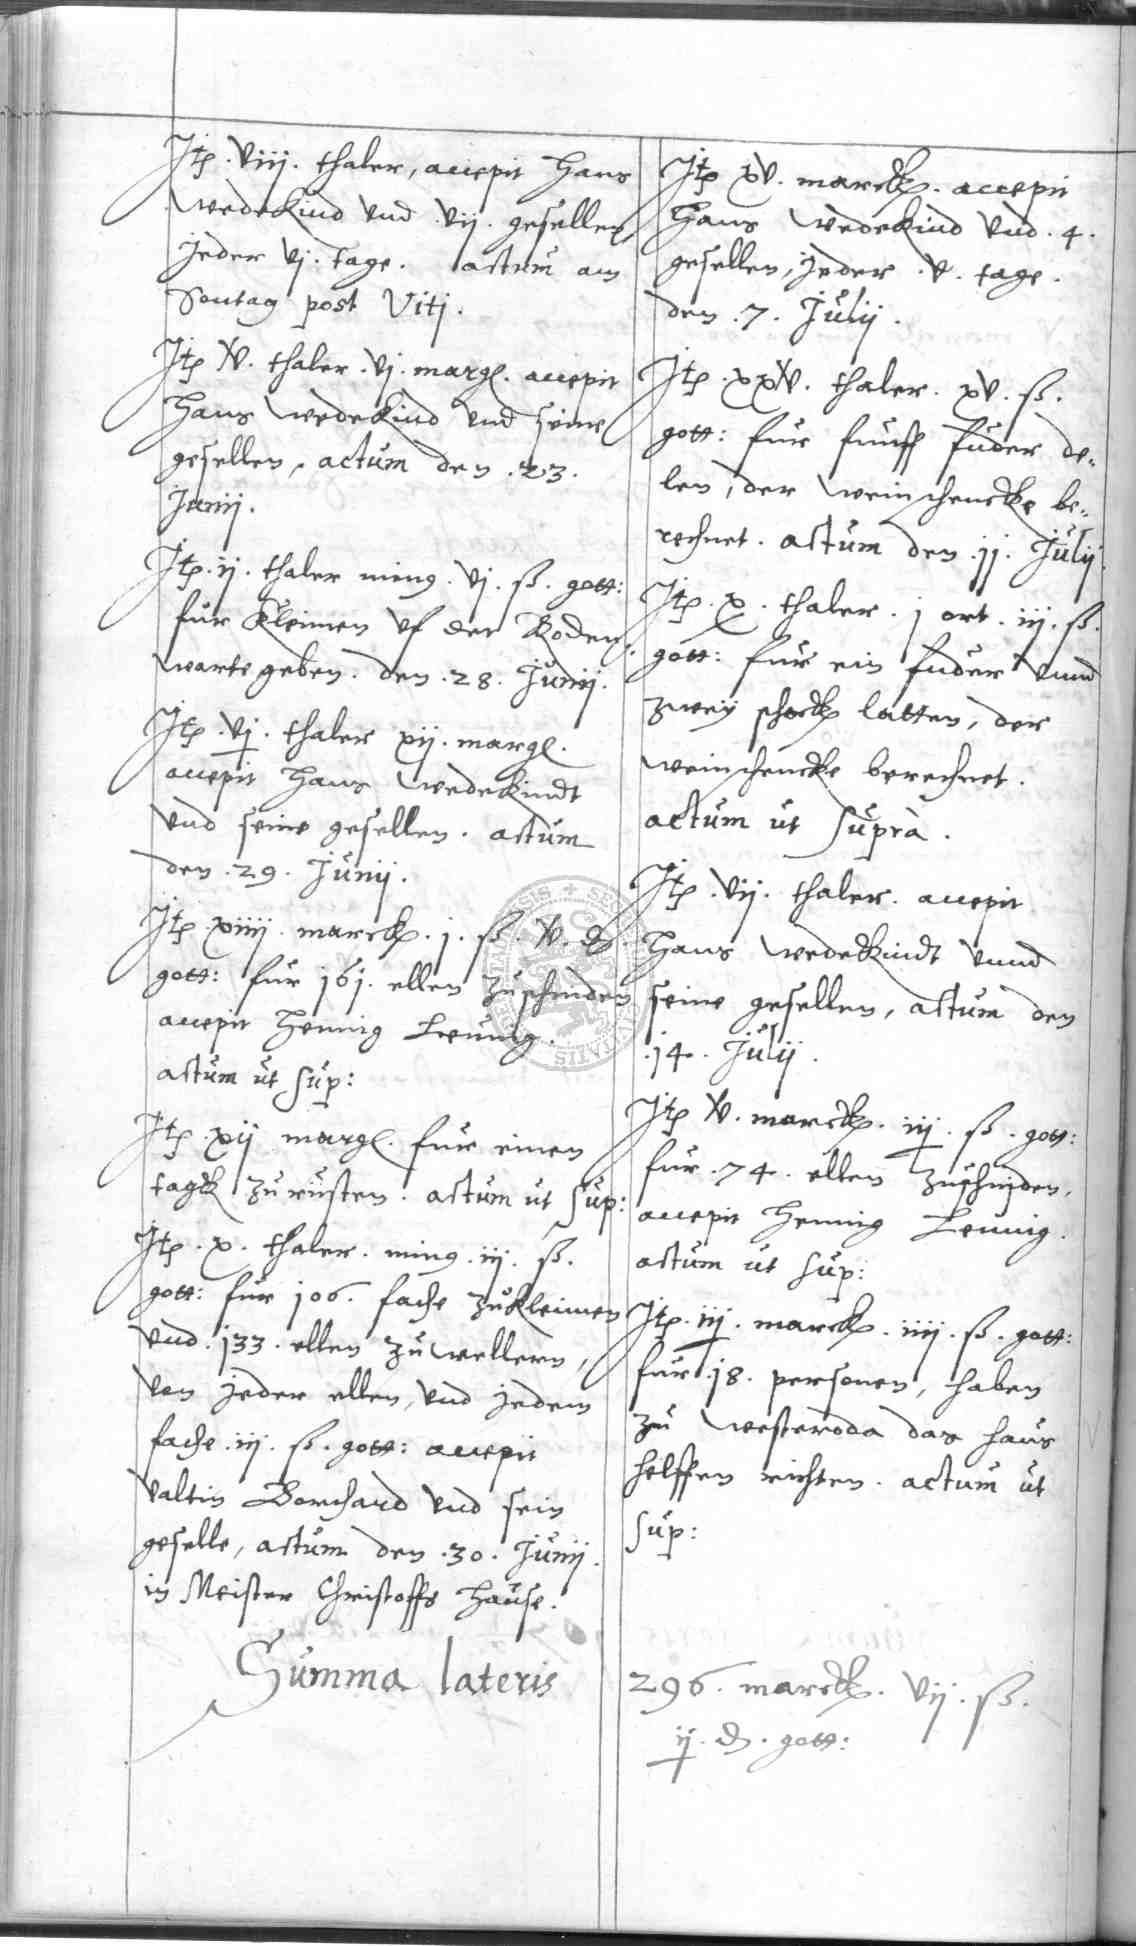 Itp. viij. thaler, accepit Hans
Wedekind vnd vij. gesellen,
Jeder vj. tage. actum am
Sontag post Viti.
Itp xv. thaler. vj. margl. accepit
Hans Wedekind vnd seine
gesellen. actum den .23.
Junij.
Itp. ij. thaler ming. vj. ß. gott:
fur Kleimen vf der Roden
warte geben. den .28. Junij.
Itp. vj. thaler xij. margl.
accepit Hans Wedekindt
vnd seine gesellen. actum
den .29. Junij.
Itp. xiiij. marck. j. ß. v. d.
gott: fur 161. ellen zuschniden
accepit Hennig Leunig.
actum ut sup:
Itp. xij margl. fur einen
tagk zu rusten. actum ut sup:
Itp. x. thaler. ming. iij. ß.
gott: fur 106. fache zukleimen
vnd .133. ellen zu wellern,
von jeder ellen, vnd jedem
fache .iij. ß. gott: accepit
Valtin Borchard vnd sein
geselle, actum den .30. Junij.
in Meister Christoffs Hause.
Summa lateris
Itp xv. marck. accepit
Hans Wedekind vnd .4.
gesellen, Jeder .v. tage.
den .7. Julij.
Itp. xxv. thaler. xv. ß.
gott: fur funff fuder de-
len, der Weinschencke be-
rechnet. actum den .11. Julij
Itp. x. thaler. j ort. iij. ß.
gott: fur ein fuder vnnd
zweij schock latten, der
Weinschencke berechnet.
actum ut suprà.
Itp. vij. thaler. accepit
Hans Wedekindt vnnd
seine gesellen, actum den
.14. Julij.
Itp v. marck. iij. ß. gott:
fur .74. ellen zuschniden,
accepit Hennig Leunig.
actum ut sup:
Itp. iij. marck. iiij. ß. gott:
fur .18. personen, haben
zu Westeroda das haus
helffen richten. actum ut
sup:
296. marck. vij. ß.
ij. d. gott: